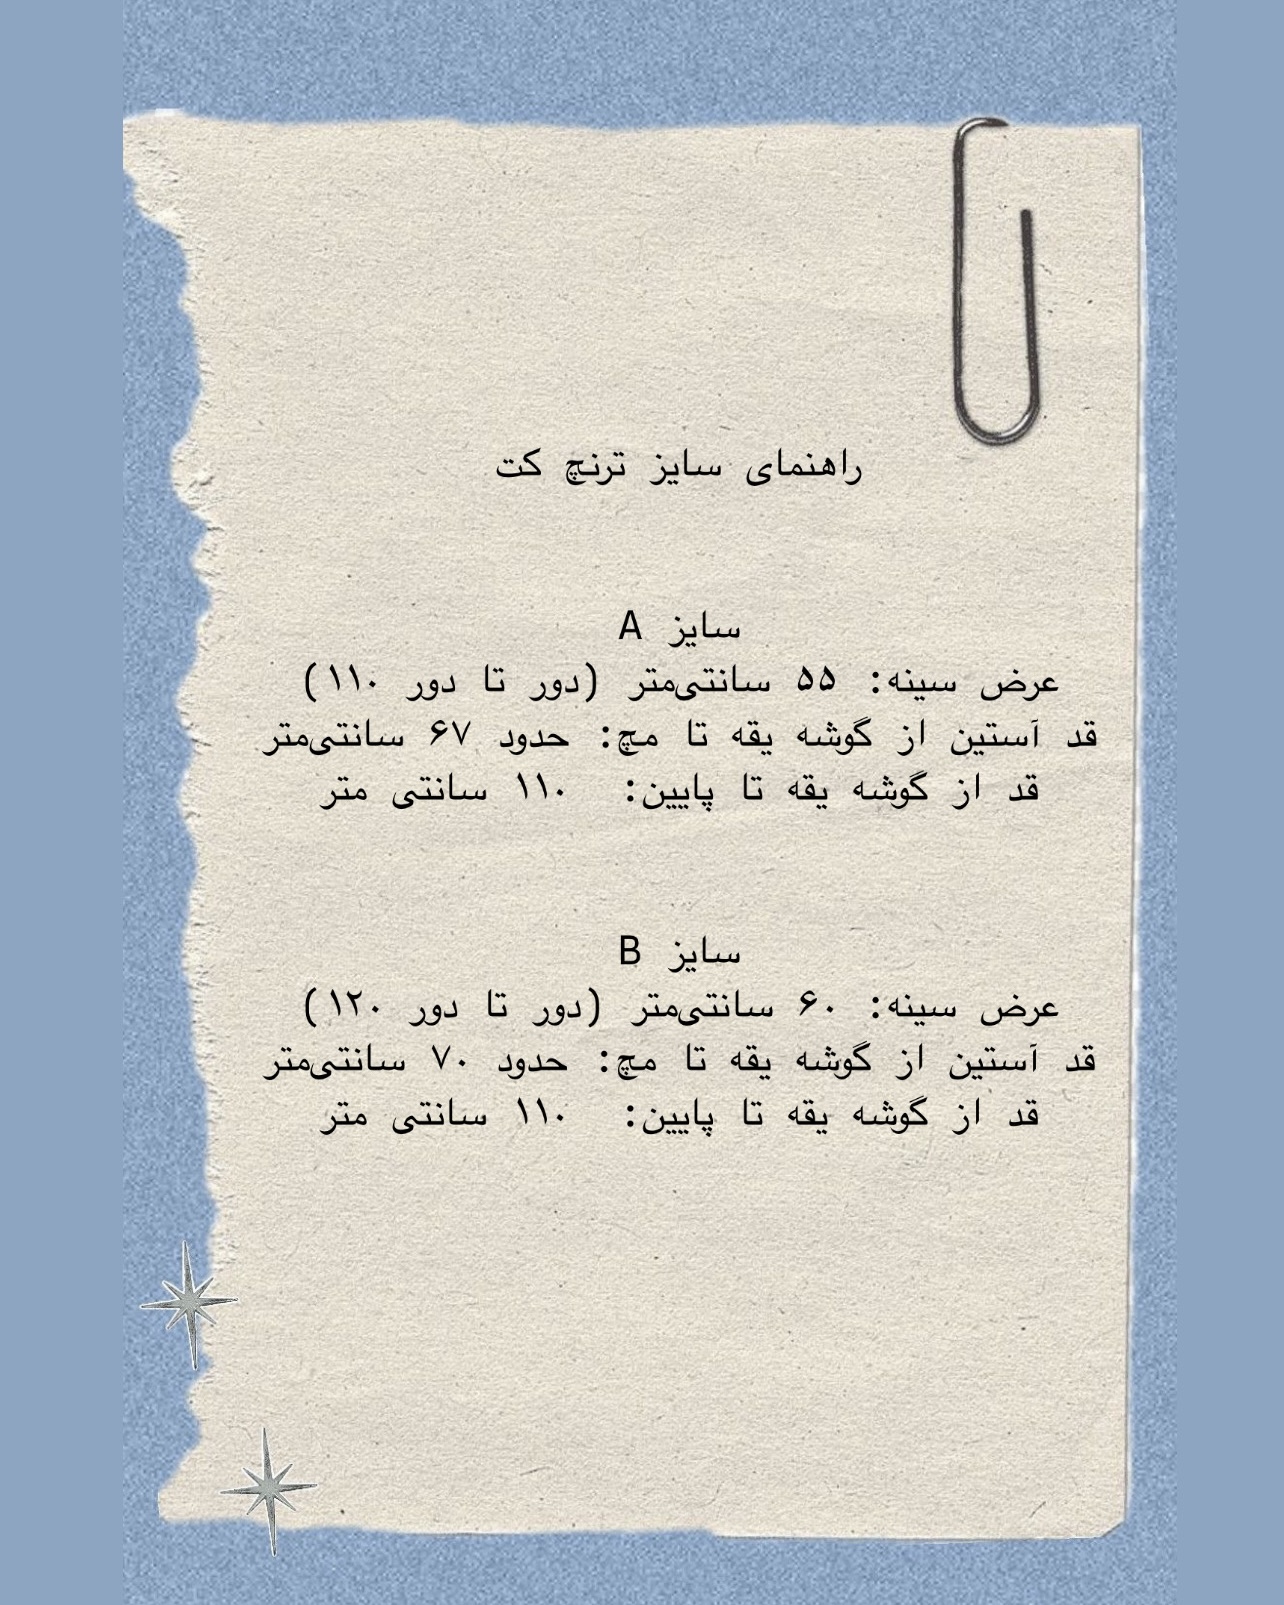 راهنمای سایز ترنچ کت
سایز A
عرض سینه: ۵۵ سانتی‌متر (دور تا دور ۱۱۰)
قد آستین از گوشه یقه تا مچ: حدود ۶۷ سانتی‌متر
قد از گوشه یقه تا پایین: ۱۱۰ سانتی متر
سایز B
عرض سینه: ۶۰ سانتی‌متر (دور تا دور ۱۲۰)
قد آستین از گوشه یقه تا مچ: حدود ۷۰ سانتی‌متر
قد از گوشه یقه تا پایین: ۱۱۰ سانتی متر